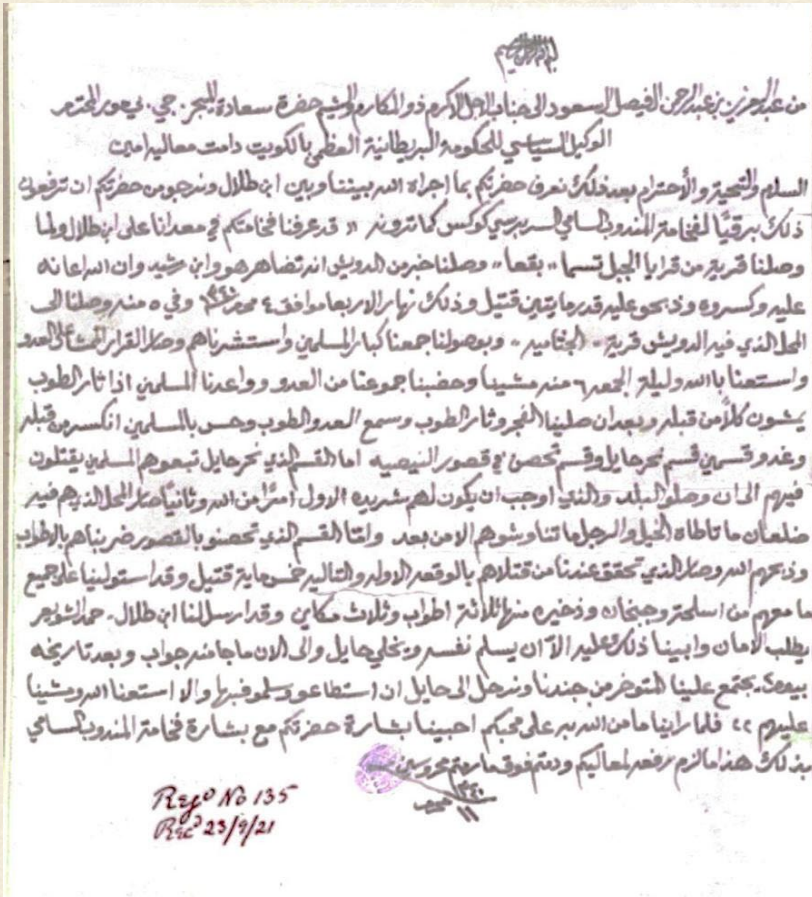 بسم الله الرحمن الرحيم
من عبد العزيز بن عبد الرحمن الفيصل السعود الى جناب الاجل الاكرم ذو المكارم والشيم حضرة سعادة الميجر جي. سي مور المحترم
الوكيل السياسي للحكومة البريطانية العظمى بالكويت دامت معاليه امين
السلام والتحية والأحترام بعد ذلك نعرف حضرتكم بما اجراه الله بيننا وبين ابن طلال ونرجو من حضرتكم ان ترفعون
ذلك برقيًا لفخامة المندوب السامي السر برسي كوكس كما ترونه " قد عرفنا فخامتكم في معدانا على ابن طلال ولما
وصلنا قرية من قرايا الجبل تسما " بقعا " وصلنا خبر من الدويش انه تضاهر هو وابن رشيد وان الله اعانه
عليه وكسروه وذبحو عليه قدر مايتين قتيل وذلك نهار الاربعا موافق ٤ محرم ١٣٤٠ وفي ٥ منه وصلنا الى
المحل الذي فيه الدويش قرية " الجثاميه " وبوصولنا جمعنا كبار المسلمين واستشرناهم وصار القرار المشا على العدو
واستعنا باالله وليلة الجمعه ٦ منه مشينا وحضبنا جموعنا من العدو وواعدنا المسلمين اذا ثار الطوب
يمشون كلاً من قبله وبعد ان صلينا الفجر وثار الطوب وسمع العدو الطوب وحس بالمسلمين انكسر من قبله
وغدو قسمين قسم نحر حايل وقسم تحصن في قصور النيصيه اما القسم الذي نحر حايل تبعوهم المسلمين يقتلون
فيهم الى ان وصلو البلد والذي اوجب ان يكون لهم شريده الاول امرًا من الله وثانيًا صار المحل الذي هم فيه
ضلعان ما تاطاه الخيل والرجل ما تناوشوهم الا من بعد وامّا القسم الذي تحصنو بالقصور ضربناهم بالاطواب
وذبحهم الله وصار الذي تحقق عندنا من قتلاهم بالوقعه الاوله والتاليه خمسماية قتيل وقد استولينا على جميع
ما معهم من اسلحة وجبخان وذخيره منها ثلاثة اطواب وثلاث مكاين وقد ارسل لنا ابن طلال حمد الشويعر
يطلب الامان وابينا ذلك عليه الا ان يسلم نفسه ويخلي حايل والى الان ما جا منه جواب وبعد تاريخه
يجتمع علينا المتوخر من جندنا ونرحل الى حايل ان استطاعو وسلمو فبها والا استعنا الله ومشينا
عليهم " فلما راينا ما من الله به على محبكم احبينا بشارة حضرتكم مع بشارة فخامة المندوب السامي
بذلك هذا ما لزم رفعه لمعاليكم ودمتم فوق ما رمتم محروسين
١٣٤٠
١١
Regd No 135
Recd 23/9/21